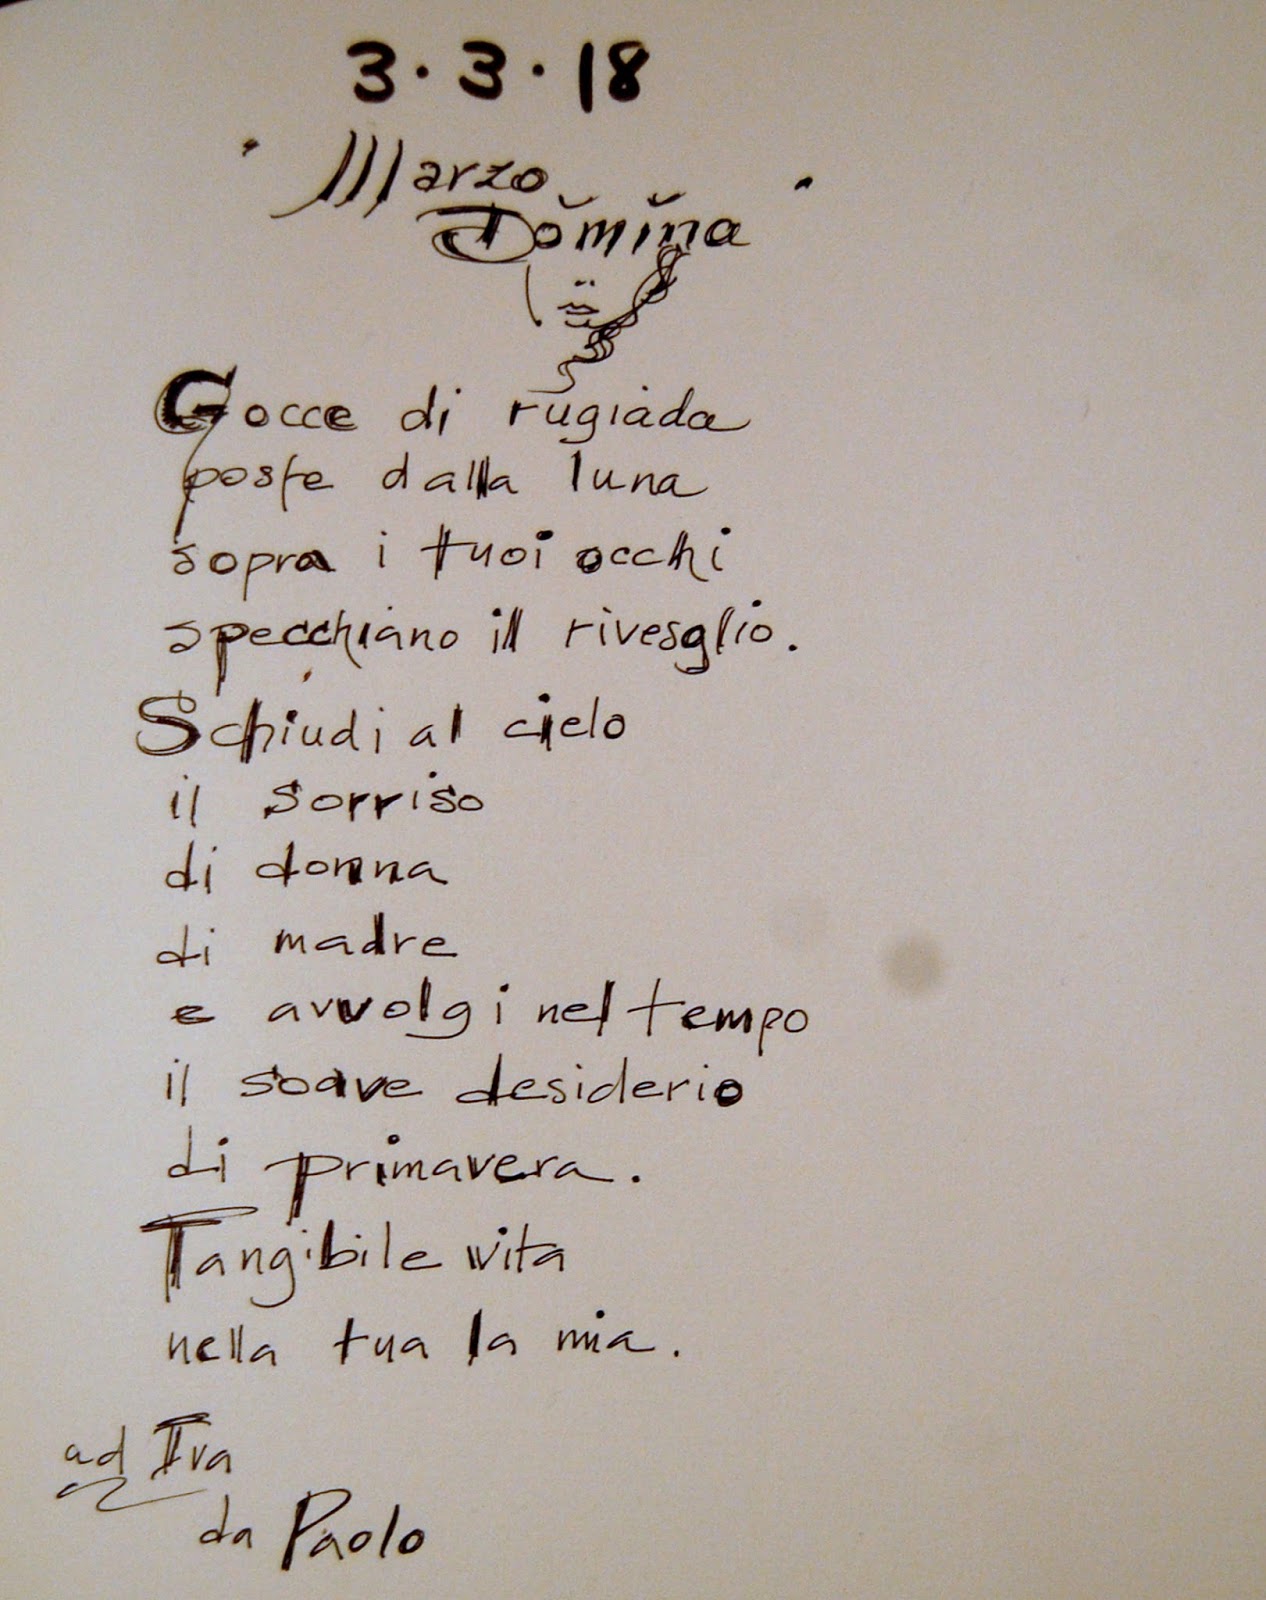 3·3·18
Marzo
Dŏmĭna
Gocce di rugiada
poste dalla luna
sopra i tuoi occhi
specchiano il rivesglio.
Schiudi al cielo
il sorriso
di donna
di madre
e avvolgi nel tempo
il soave desiderio
di primavera.
Tangibile vita
nella tua la mia.
ad Iva
da Paolo